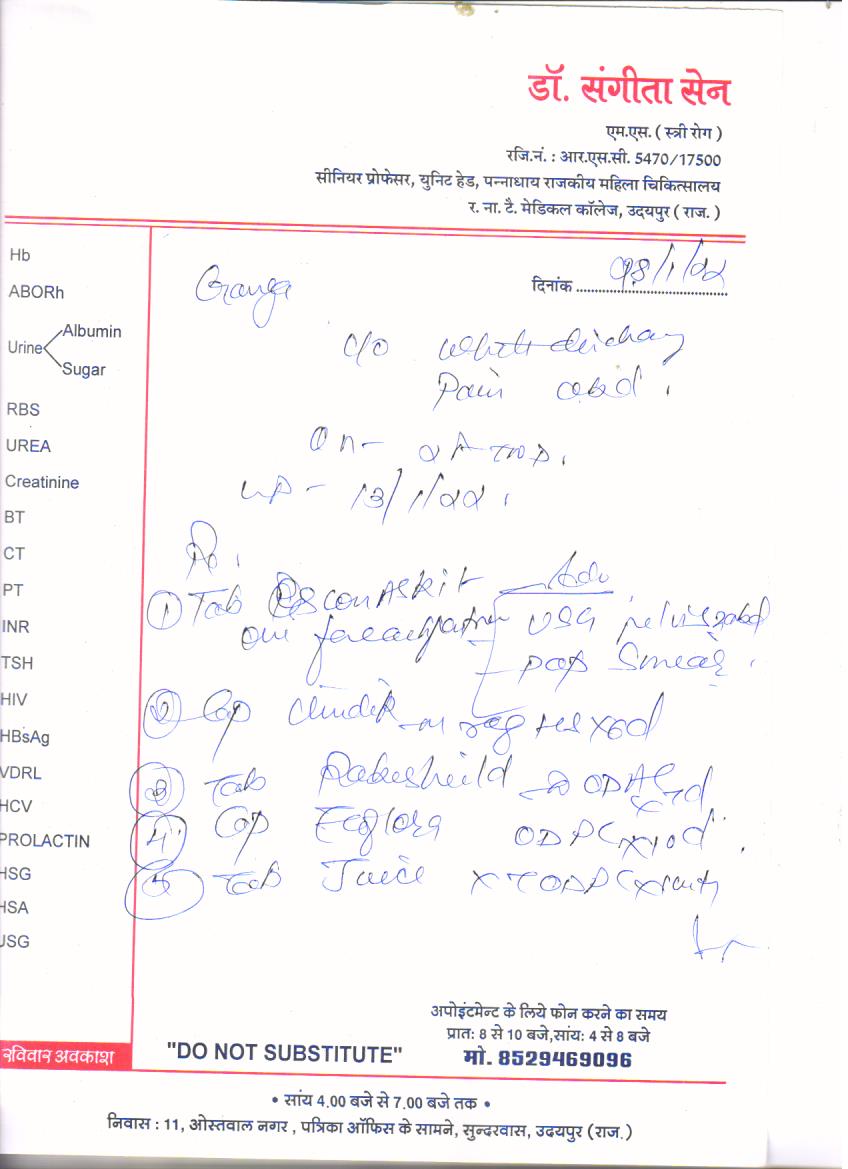 डॉ. संगीता सेन
एम.एस. ( स्त्री रोग )
रजि.नं. : आर.एस.सी. 5470/17500
सीनियर प्रोफेसर, युनिट हेड, पन्नाधाय राजकीय महिला चिकित्सालय
र. ना. टै. मेडिकल कॉलेज, उदयपुर ( राज. )
Hb
ABORh
Urine Albumin
Sugar
RBS
UREA
Creatinine
BT
CT
PT
INR
TSH
HIV
HBsAg
VDRL
HCV
PROLACTIN
HSG
HSA
USG
रविवार अवकाश
Ganga
दिनांक 18/1/22
c/o white discharg
Pain abd.
LMP - 13/1/22.
Rx.
① Tab kit
Adv
USG pelvis abd
pap Smear.
② Cap
③ Tab Rabesheild OD AC 7d
④ Cap Ecoflora OD PC x 10d.
⑤ Tab
"DO NOT SUBSTITUTE"
अपोइंटमेन्ट के लिये फोन करने का समय
प्रात: 8 से 10 बजे,सांय: 4 से 8 बजे
मो. 8529469096
• सांय 4.00 बजे से 7.00 बजे तक •
निवास : 11, ओस्तवाल नगर , पत्रिका ऑफिस के सामने, सुन्दरवास, उदयपुर (राज.)